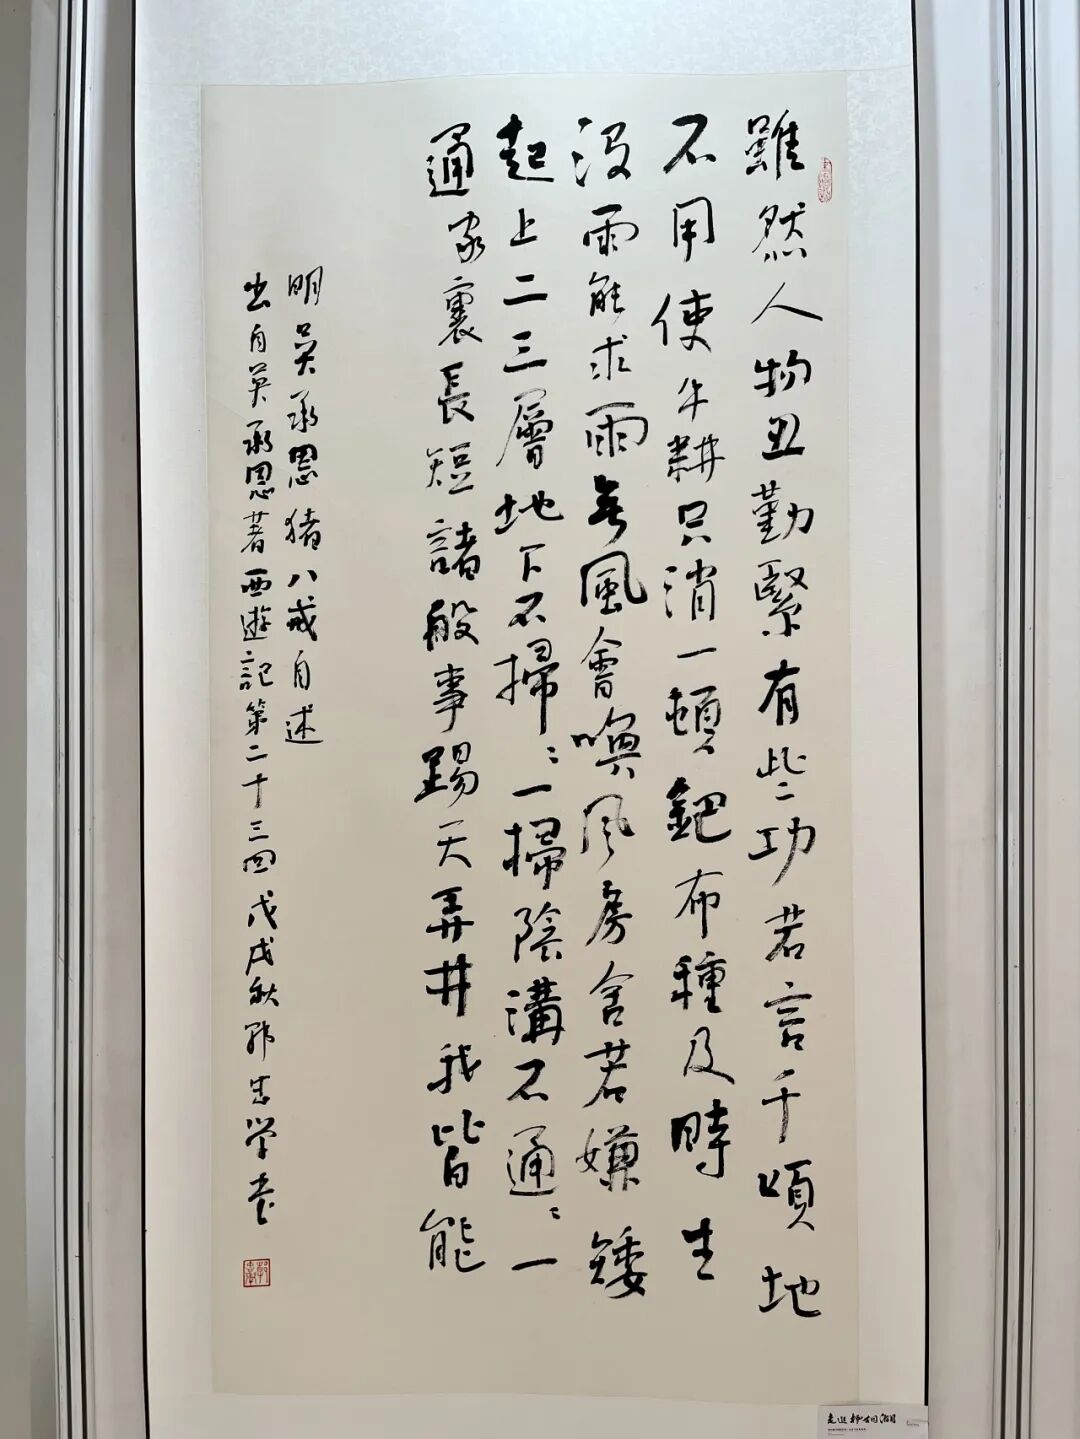 雖然人物丑勤緊有些功若言千頃地
不用使牛耕只消一頓鈀布種及時生
沒雨能求雨無風會喚风房舍若嫌矮
起上二三層地下不掃〻一掃陰溝不通〻一
通家裏長短諸般事踢天弄井我皆能
明吳承恩猪八戒自述
出自吳承恩著西遊記第二十三回戊戌秋